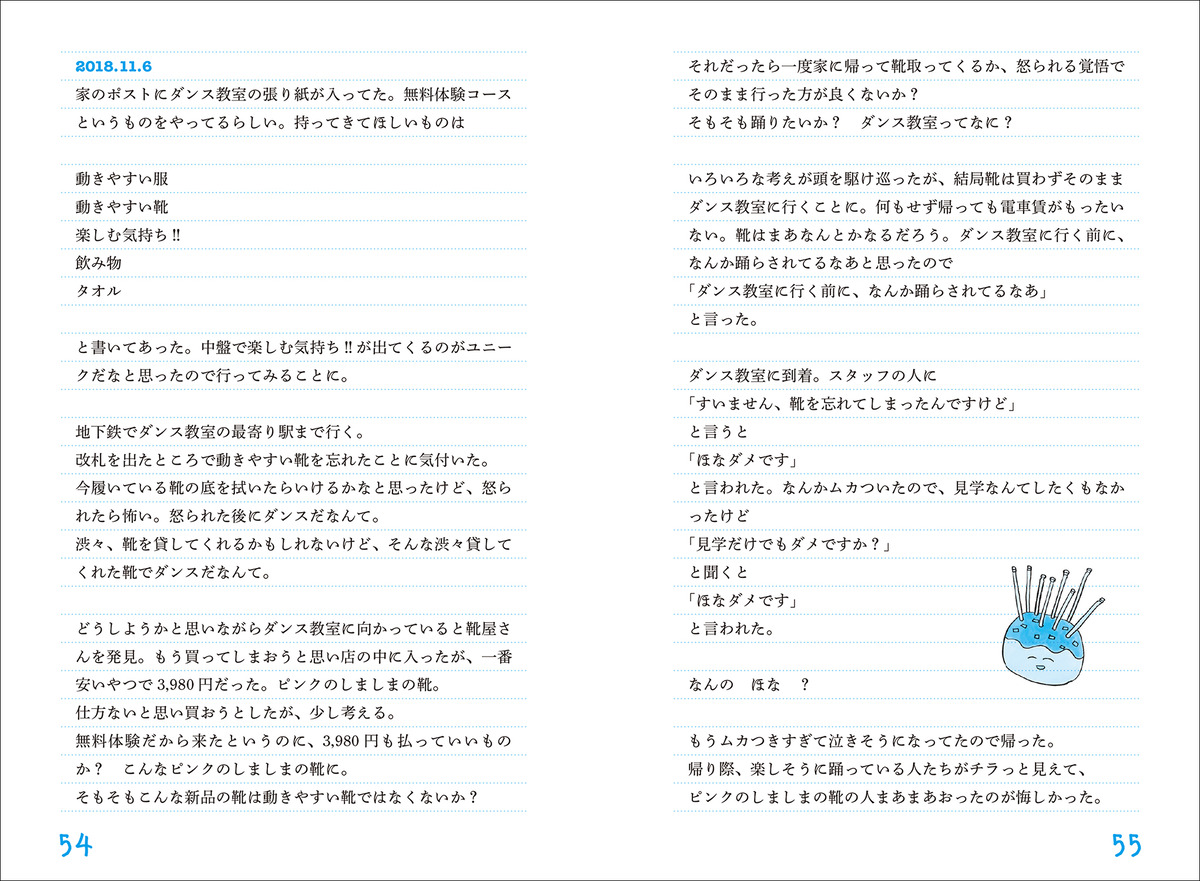 2018.11.6
家のポストにダンス教室の張り紙が入ってた。無料体験コース
というものをやってるらしい。持ってきてほしいものは
動きやすい服
動きやすい靴
楽しむ気持ち!!
飲み物
タオル
と書いてあった。中盤で楽しむ気持ち!!が出てくるのがユニー
クだなと思ったので行ってみることに。
地下鉄でダンス教室の最寄り駅まで行く。
改札を出たところで動きやすい靴を忘れたことに気付いた。
今履いている靴の底を拭いたらいけるかなと思ったけど、怒ら
れたら怖い。怒られた後にダンスだなんて。
渋々、靴を貸してくれるかもしれないけど、そんな渋々貸して
くれた靴でダンスだなんて。
どうしようかと思いながらダンス教室に向かっていると靴屋さ
んを発見。もう買ってしまおうと思い店の中に入ったが、一番
安いやつで3,980円だった。ピンクのしましまの靴。
仕方ないと思い買おうとしたが、少し考える。
無料体験だから来たというのに、3,980円も払っていいもの
か？　こんなピンクのしましまの靴に。
そもそもこんな新品の靴は動きやすい靴ではなくないか？
54
それだったら一度家に帰って靴取ってくるか、怒られる覚悟で
そのまま行った方が良くないか？
そもそも踊りたいか？　ダンス教室ってなに？
いろいろな考えが頭を駆け巡ったが、結局靴は買わずそのまま
ダンス教室に行くことに。何もせず帰っても電車賃がもったい
ない。靴はまあなんとかなるだろう。ダンス教室に行く前に、
なんか踊らされてるなあと思ったので
「ダンス教室に行く前に、なんか踊らされてるなあ」
と言った。
ダンス教室に到着。スタッフの人に
「すいません、靴を忘れてしまったんですけど」
と言うと
「ほなダメです」
と言われた。なんかムカついたので、見学なんてしたくもなか
ったけど
「見学だけでもダメですか？」
と聞くと
「ほなダメです」
と言われた。
なんの　ほな　？
もうムカつきすぎて泣きそうになってたので帰った。
帰り際、楽しそうに踊っている人たちがチラっと見えて、
ピンクのしましまの靴の人まあまあおったのが悔しかった。
55